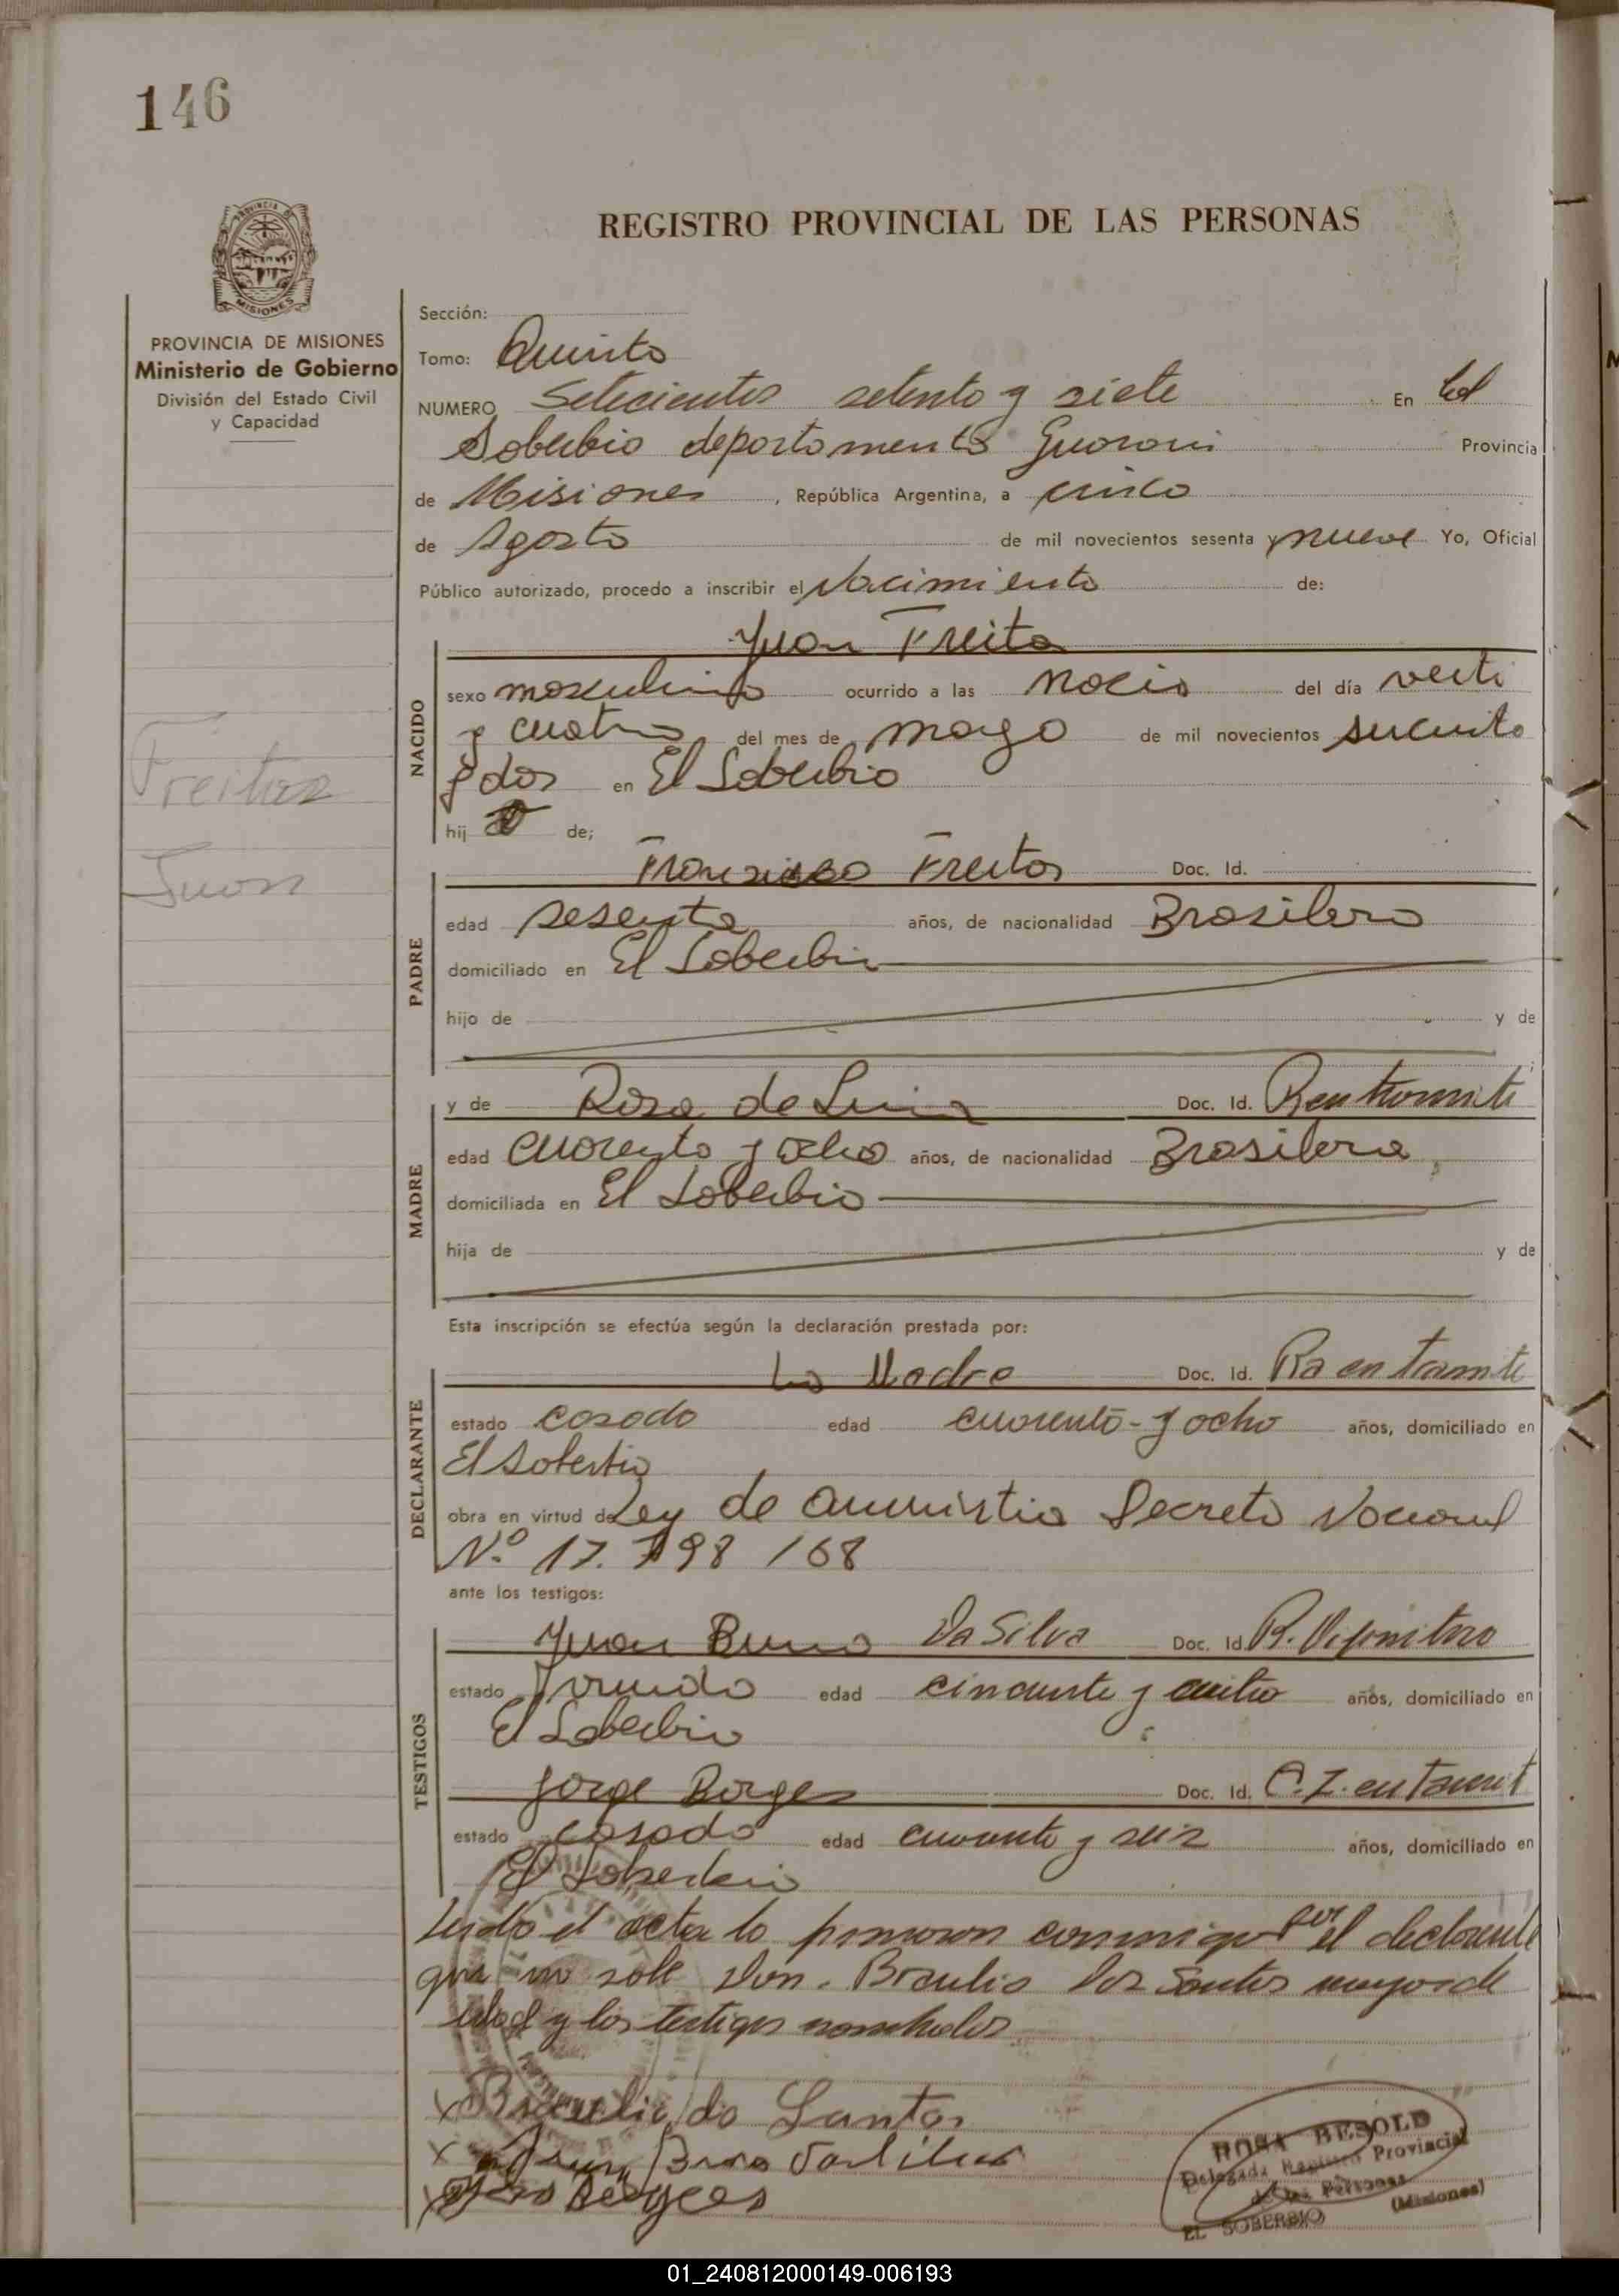 146
REGISTRO PROVINCIAL DE LAS PERSONAS
MISIONES
PROVINCIA DE MISIONES
Ministerio de Gobierno
División del Estado Civil
y Capacidad
Freitas
Juan
Sección:
Tomo: Quinto
NUMERO Setecientos setenta y siete En El
Soberbio departamento Guarani Provincia
de Misiones, República Argentina, a cinco
de Agosto de mil novecientos sesenta y nueve Yo, Oficial
Público autorizado, procedo a inscribir el Nacimiento de:
Juan Freita
NACIDO
sexo masculino ocurrido a las del día
y cuatro del mes de mayo de mil novecientos
y dos en El Soberbio
hij o de;
Francisco Freitas Doc. Id.
PADRE
edad sesenta años, de nacionalidad Brasilero
domiciliado en El Soberbio
hijo de y de
y de Rosa de Doc. Id. R en tramite
MADRE
edad cuarenta y ocho años, de nacionalidad Brasilera
domiciliada en El Soberbio
hija de y de
Esta inscripción se efectúa según la declaración prestada por:
La Madre Doc. Id. Ra en tramite
DECLARANTE
estado casada edad cuarenta y ocho años, domiciliado en
El Soberbio
obra en virtud de Ley de amnistia Decreto Nacional
Nº 17. 798 /68
ante los testigos:
Juan Bruno Da Silva Doc. Id.
TESTIGOS
estado edad cincuenta y cuatro años, domiciliado en
El Soberbio
Jorge Borges Doc. Id. C.I. en
estado casado edad cuarenta y seis años, domiciliado en
El Soberbio
Leida el acta la firmaron conmigo por el declarante
que no sabe Don. Braulio Dos Santos mayor de
edad y los testigos nombrados
x Braulio do Santos
x Juan Da Silva
x Borges
ROSA BESOLD
Delegada Registro Provincial
de las Personas
EL SOBERBIO (Misiones)
01_240812000149-006193